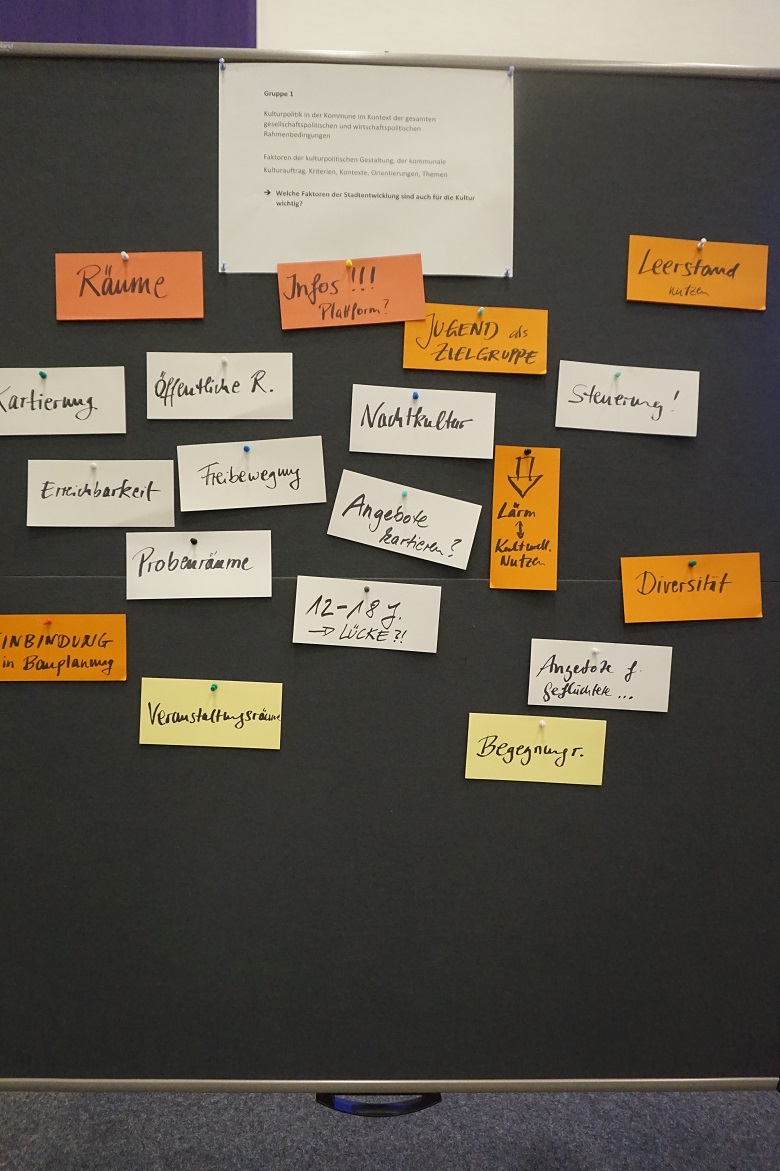 Gruppe 1
Kulturpolitik in der Kommune im Kontext der gesamten
gesellschaftspolitischen und wirtschaftspolitischen
Rahmenbedingungen
Faktoren der kulturpolitischen Gestaltung, der kommunale
Kulturauftrag, Kriterien, Kontexte, Orientierungen, Themen
➔ Welche Faktoren der Stadtentwicklung sind auch für die Kultur
wichtig?
Räume
Infos !!!
Plattform?
Leerstand
nutzen
JUGEND als
ZIELGRUPPE
Kartierung
Öffentliche R.
Nachtkultur
Steuerung!
Erreichbarkeit
Freibewegung
Angebote
kartieren?
Lärm
↕
Kulturell.
Nutzen
Probenräume
Diversität
12-18 J.
→ LÜCKE?!
INBINDUNG
in Bauplanung
Angebote f.
Geflüchtete...
Veranstaltungsräume
Begegnungsr.